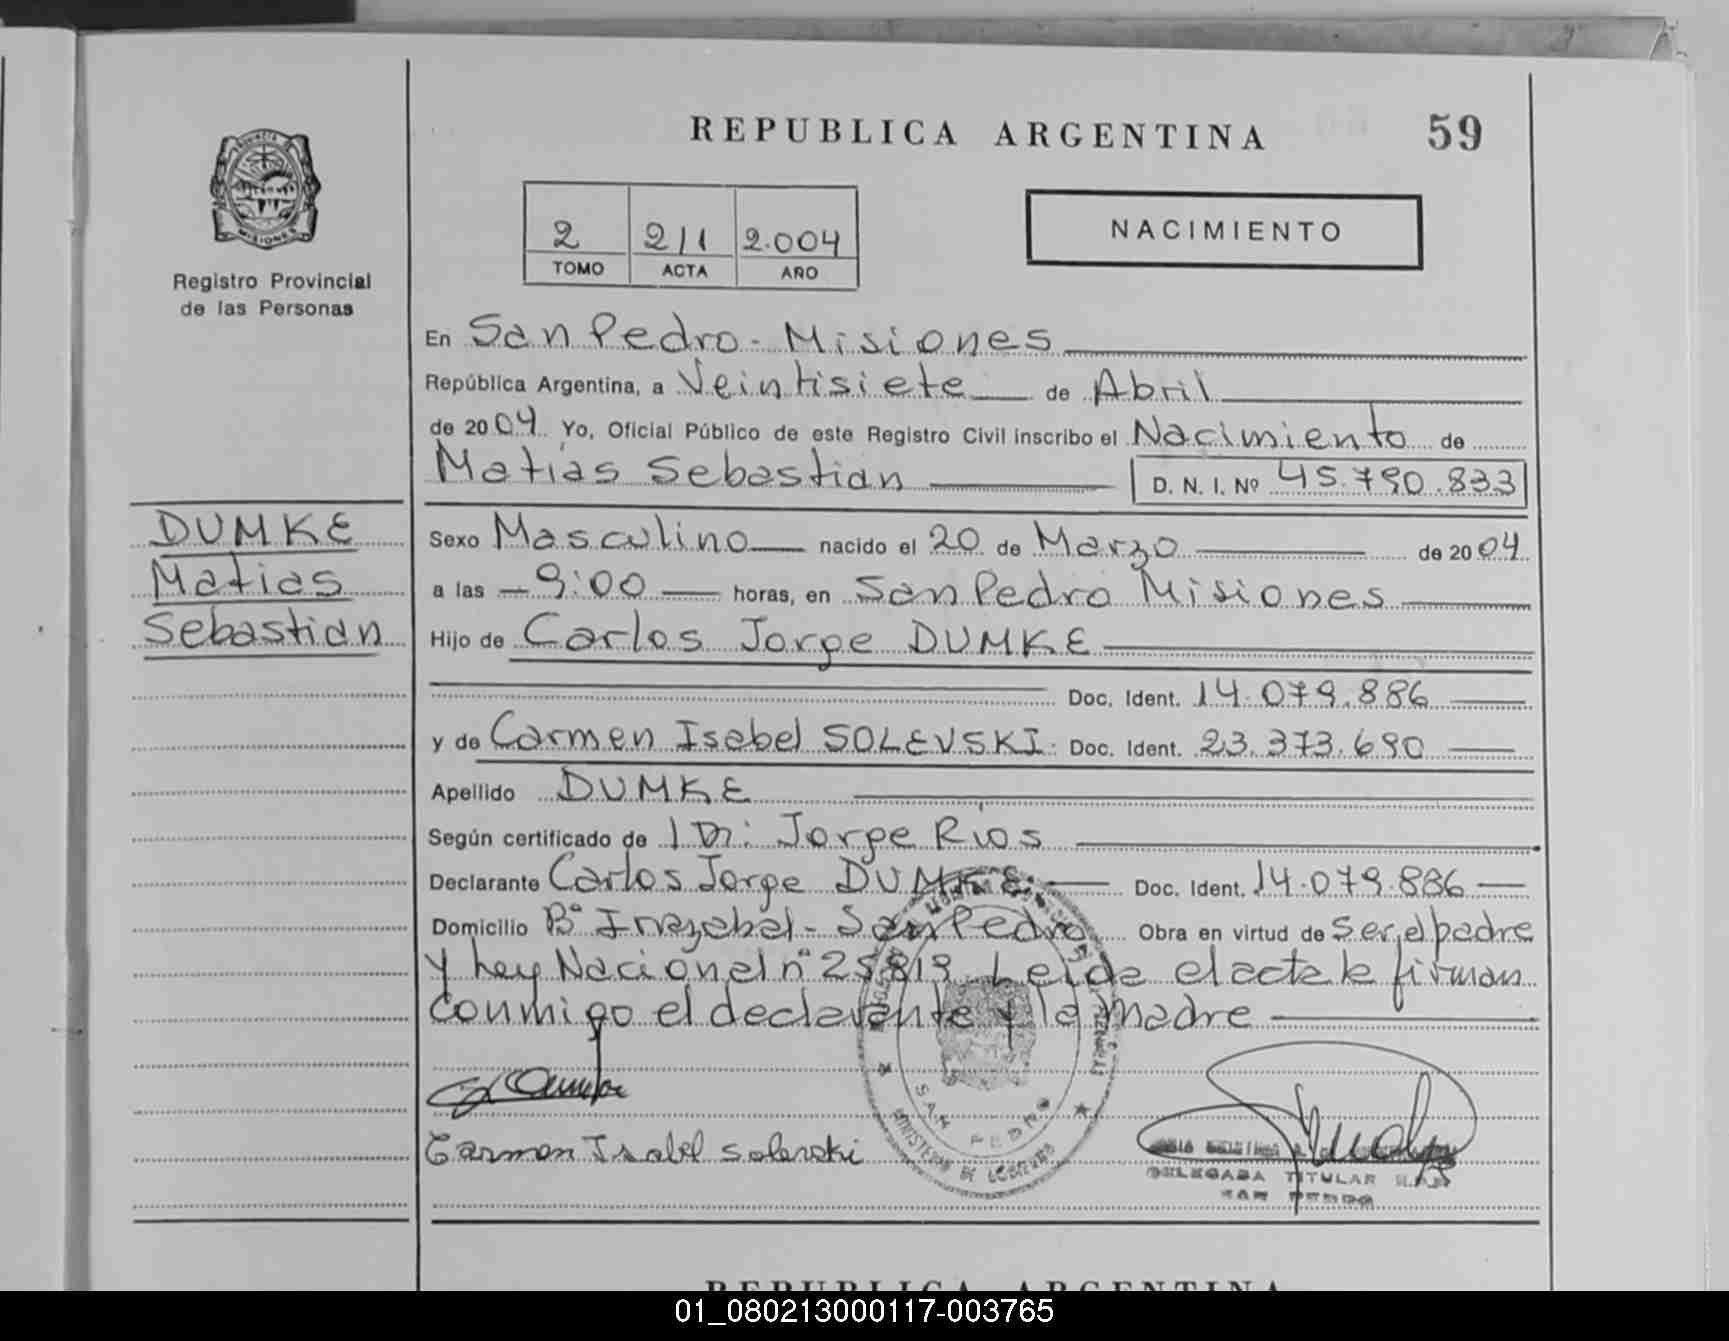 REPUBLICA ARGENTINA
59
PROVINCIA DE
MISIONES
Registro Provincial
de las Personas
2 211 2.004
TOMO ACTA AÑO
NACIMIENTO
En San Pedro - Misiones
República Argentina, a Veintisiete de Abril
de 2004 Yo, Oficial Público de este Registro Civil inscribo el Nacimiento de
Matías Sebastian D. N. I. Nº 45.790.833
DUMKE
Matias
Sebastian
Sexo Masculino nacido el 20 de Marzo de 2004
a las - 9:00 horas, en San Pedro Misiones
Hijo de Carlos Jorge DUMKE
Doc. Ident. 14.079.886
y de Carmen Isabel SOLEVSKI Doc. Ident. 23.373.690
Apellido DUMKE
Según certificado de Jorge Rios
Declarante Carlos Jorge DUMKE Doc. Ident. 14.079.886
Domicilio Bº Irrazabal - San Pedro Obra en virtud de ser el padre
y Ley Nacional nº 25819 Leida el acta la firman
conmigo el declarante y la madre
Carmen Isabel Solevski
SAN PEDRO
MINISTERIO DE GOBIERNO
DELEGADA TITULAR
SAN PEDRO
REPUBLICA ARGENTINA
01_080213000117-003765